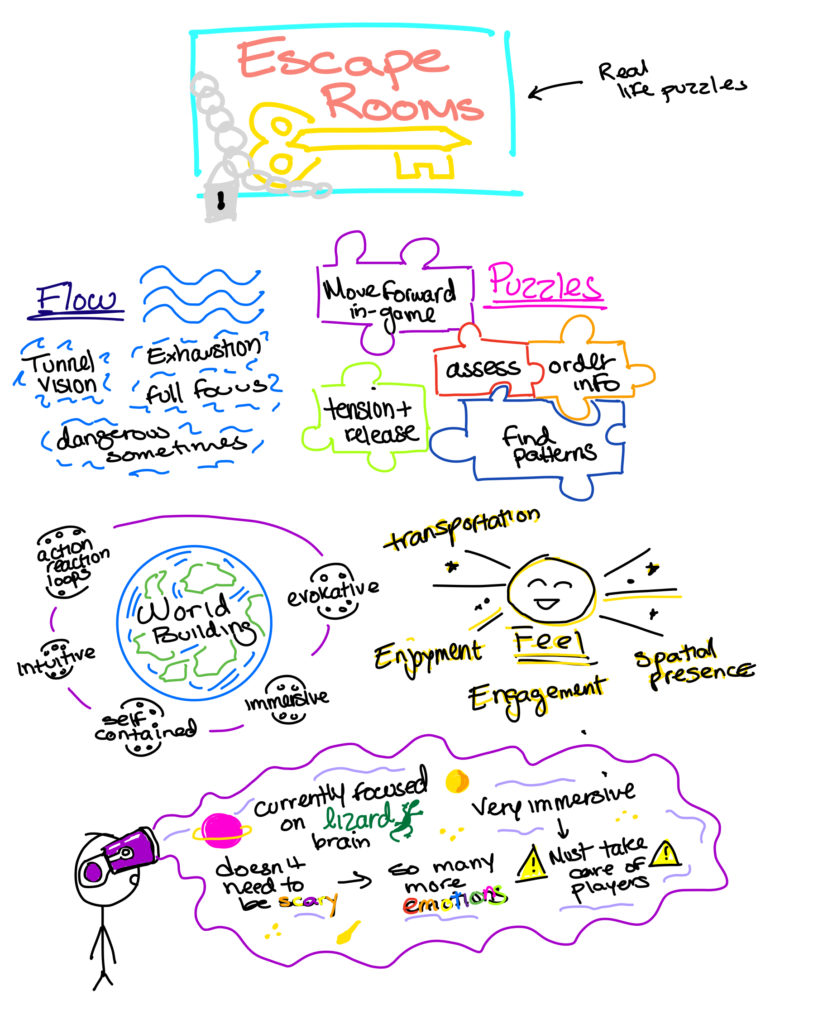 Escape
Rooms
Real
life puzzles
Flow
Tunnel
Vision
Exhaustion
full focus
dangerous
sometimes
Puzzles
Move forward
in-game
assess
order
info
tension +
release
find
patterns
World
Building
action
reaction
loops
evokative
intuitive
self
contained
immersive
transportation
Enjoyment
Feel
Engagement
spatial
presence
currently focused
on lizard
brain
Very immersive
doesn't
need to
be scary
so many
more
emotions
Must take
care of
players